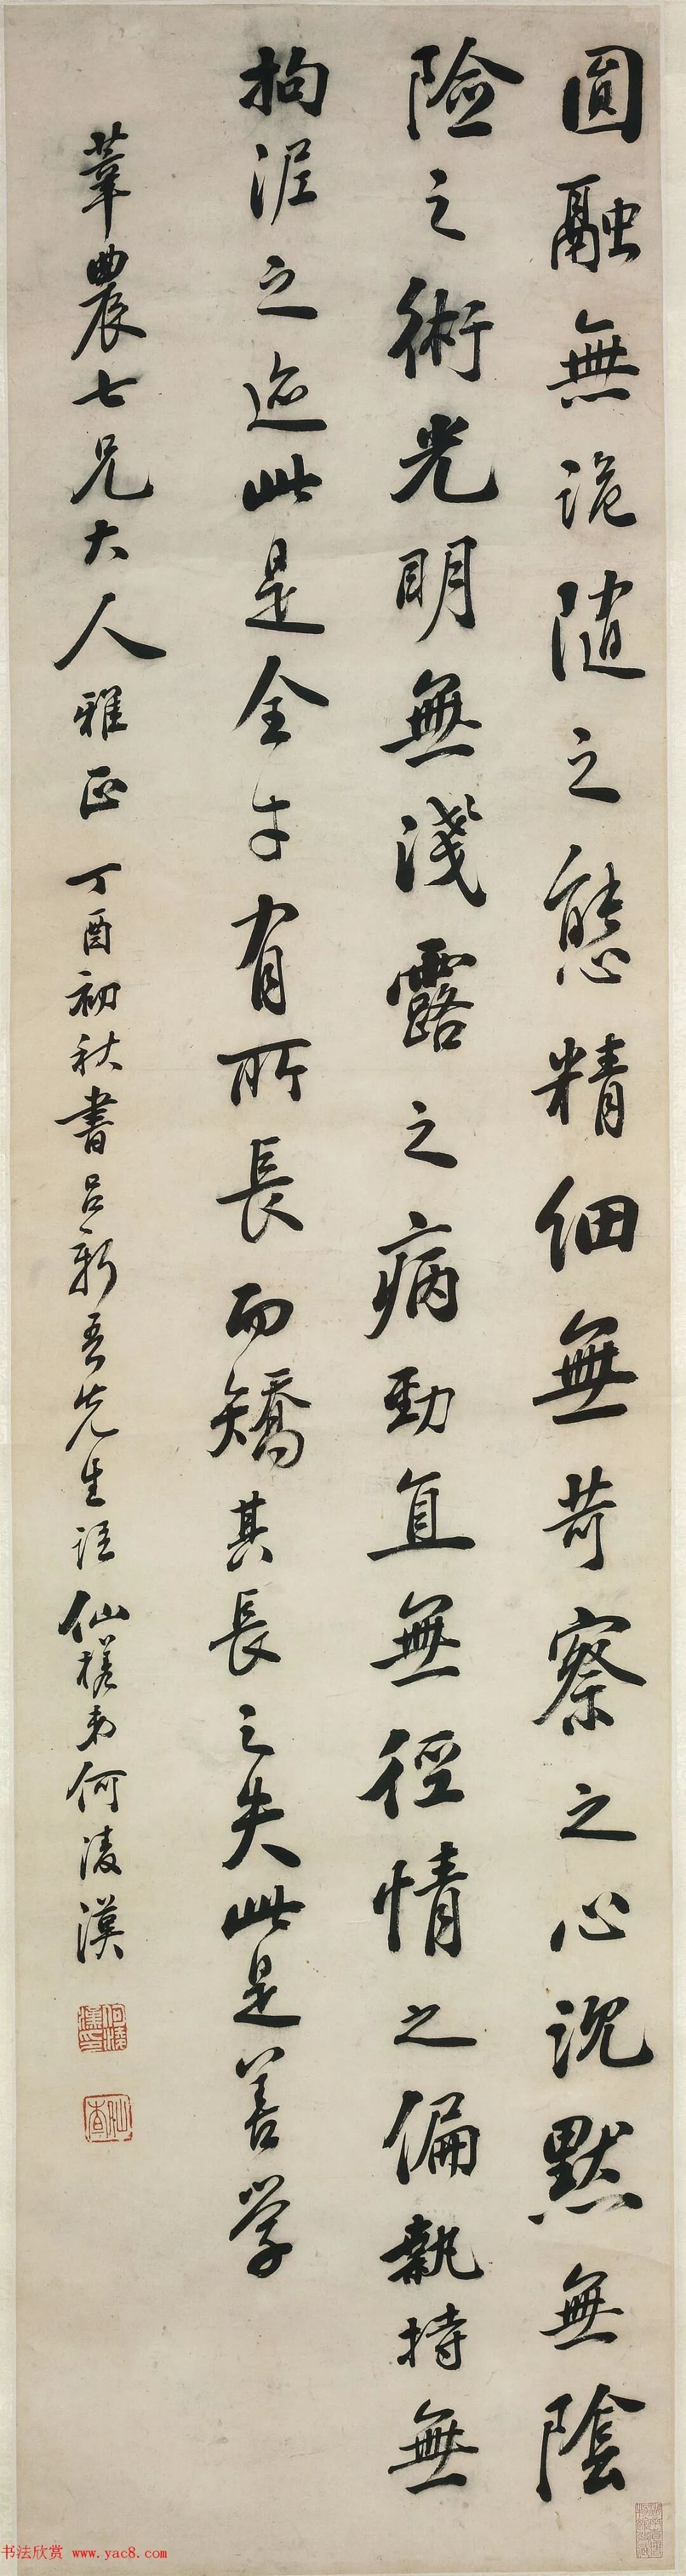 圓融無詭隨之態精細無苛察之心沉默無陰
險之術光明無淺露之病勁直無徑情之偏執持無
拘泥之迹此是全才有所長而矯其長之失此是善學
葦農七兄大人雅正 丁酉初秋書呂新吾先生語 仙槎弟何淩漢
何淩漢印
仙槎
书法欣赏 www.yac8.com